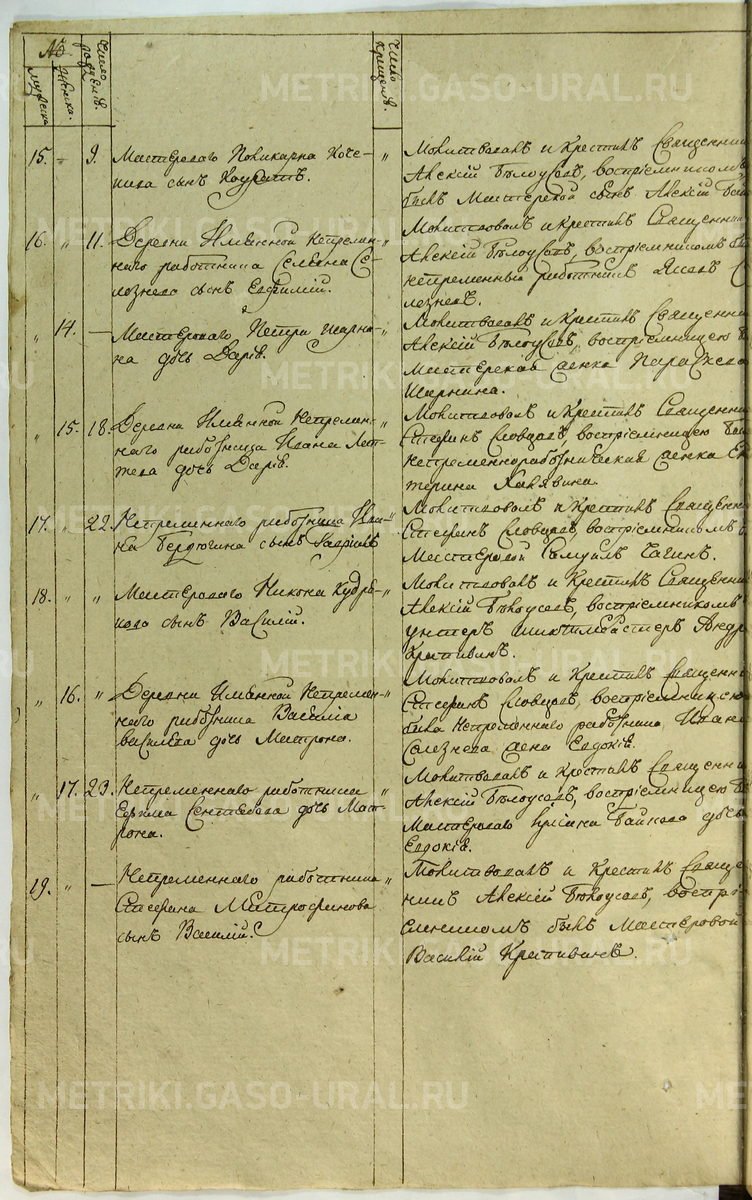 №
мужеска
женска.
Число родившихъ.
Число крещенія.
15. " 9. Мастероваго Поликарпа Коче-
сынъ
" Молитвовалъ и Крестилъ Священникъ
Алексій Бѣлоусовъ, воспріемникомъ
былъ Мастеровой сынъ Алексій
16. " 11. Деревни Имянной Непремен-
наго работника Семена Се-
лезнева сынъ Евфимій.
" Молитвовалъ и Крестилъ Священни
Алексій Бѣлоусовъ, воспріемникомъ бы
непременный работникъ Яковъ С
лезневъ.
" 14. — Мастероваго Петра Ширни-
на дочь Дарія.
" Молитвовалъ и Крестилъ Священни
Алексій Бѣлоусовъ, воспріемницею б
мастерская девка Параскева
Ширнина.
" 15. 18. Деревни Имянной Непремен-
наго работника Ивана
дочь Дарія.
" Молитвовалъ и Крестилъ Священни
Стефанъ Словцовъ, воспріемницею был
непременноработническая девка Ека
терина
17. " 22. Непременнаго работника
Бердюгина сынъ
" Молитвовалъ и Крестилъ Священни
Стефанъ Словцовъ, воспріемникомъ б
Мастеровой Самуилъ Чагинъ.
18. " " Мастероваго Никона Кудря-
кова сынъ Василій.
" Молитвовалъ и Крестилъ Священни
Алексій Бѣлоусовъ, воспріемникомъ
унтеръ шихтмейстеръ Андр
Крапивинъ.
" 16. " Деревни Имянной Непремен-
наго работника Василія
Васильева дочь Матрона.
" Молитвовалъ и Крестилъ Священни
Стефанъ Словцовъ, воспріемницею
была Непременнаго работника Ивана
Селезнева жена Евдокія.
" 17. 23. Непременнаго работника
дочь Мат-
рона.
" Молитвовалъ и Крестилъ Священни
Алексій Бѣлоусовъ, воспріемницею бы
Мастероваго Байкова дочь
Евдокія.
19. " — Непременнаго работника
Стефана Митрофанова
сынъ Василій.
" Молитвовалъ и Крестилъ Священ
никъ Алексій Бѣлоусовъ, воспрі-
емникомъ былъ Мастеровой
Василій Крапивинъ.
METRIKI.GASO-URAL.RU